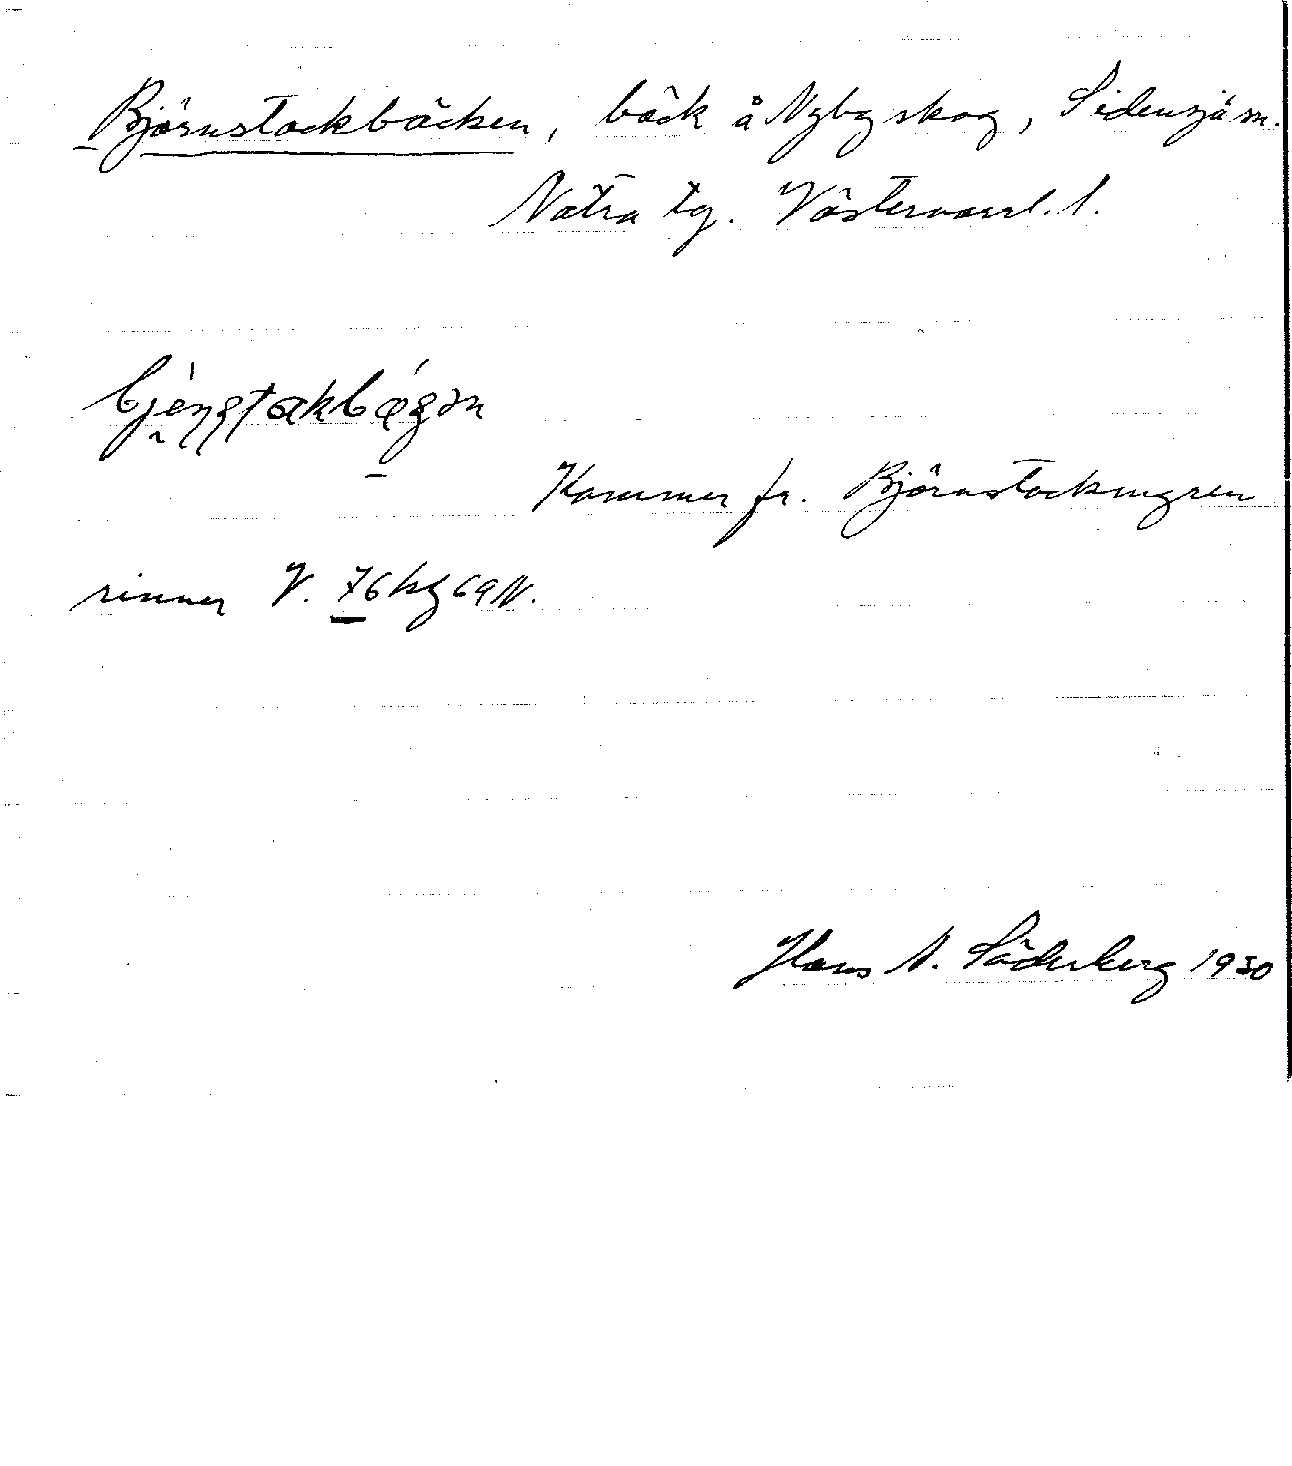 Björnstockbäcken, bäck å Nyby skog, Sidensjö sn.
Nätra tg. Västernorrl. l.
Kommer fr. Björnstockmyren
rinner V.
Hans A. Söderberg 1930